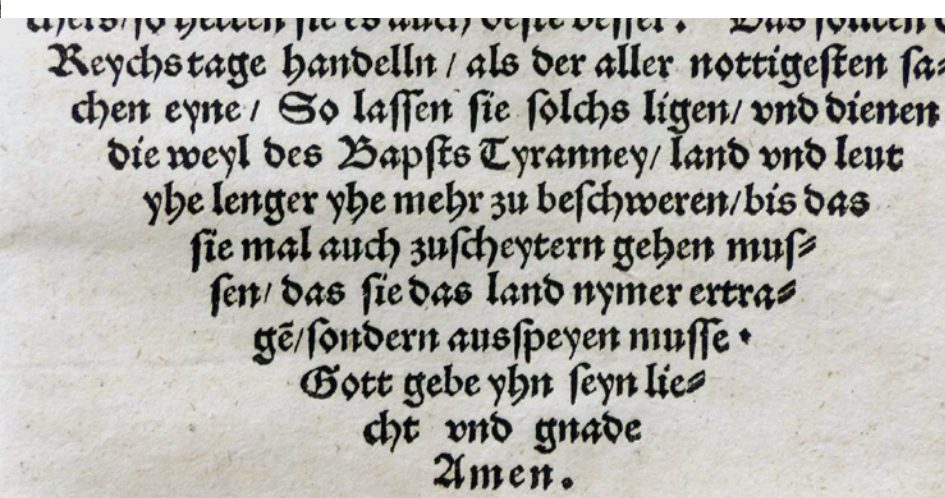 chers/ so hetten sie es auch deste besser. Das solten
Reychstage handelln / als der aller nottigesten sa⸗
chen eyne / So lassen sie solchs ligen/ vnd dienen
die weyl des Bapsts Tyranney/ land vnd leut
yhe lenger yhe mehr zu beschweren/bis das
sie mal auch zuscheytern gehen mus⸗
sen/ das sie das land nymer ertra⸗
gẽ/sondern ausspeyen musse.
Gott gebe yhn seyn lie⸗
cht vnd gnade
Amen.